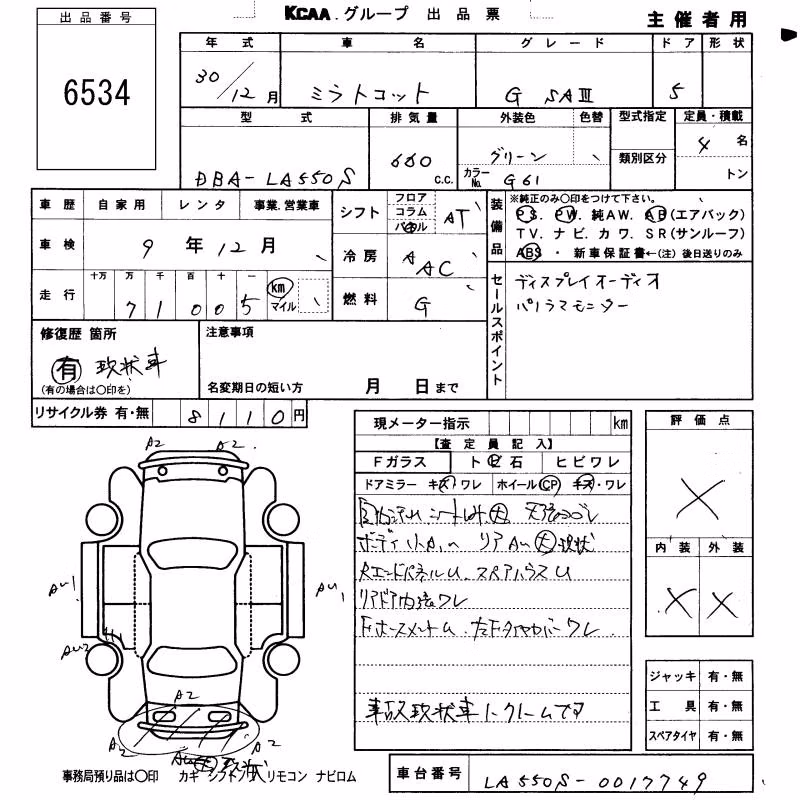 出品番号
6534
KCAA.グループ 出品票
主催者用
年式 車名 グレード ドア 形状
30/12月 ミラトコット G SAⅢ 5
型式 排気量 外装色 色替 型式指定 定員・積載
DBA-LA550S 660 c.c. グリーン 4名
カラーNo. G61 類別区分 トン
車歴 自家用 レンタ 事業.営業車
車検 9年12月
走行 十万 万 千 百 十 一
7 1 0 0 5 km マイル
シフト フロア コラム AT
冷房 A AC
燃料 G
装備品 ※純正のみ〇印をつけて下さい。
PS. PW. 純AW. AB(エアバック)
TV. ナビ. カワ. SR(サンルーフ)
ABS ・ 新車保証書←(注) 後日送りのみ
セールスポイント
ディスプレイオーディオ
パノラマモニター
修復歴 箇所
有 現状車
(有の場合は〇印を)
注意事項
名変期日の短い方 月 日まで
リサイクル券 有・無 8110円
現メーター指示 km
【査定員記入】
Fガラス トビ石 ヒビワレ
ドアミラー キズ ワレ ホイールCP キズ・ワレ
ボディ小A.u リアAu大現状
RエンドパネルU. スペアハウスU
リアドア内張ワレ
FホースメントU. 左Fタイヤカバーワレ
事故現状車ノークレームです
評価点
X
内装 外装
X X
ジャッキ 有・無
工具 有・無
スペアタイヤ 有・無
A2 A2
AU1 AU1
AU2
A2
A2 A2
事務局預り品は〇印 カギ リモコン ナビロム
車台番号 LA550S-0017749